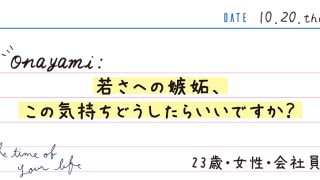 DATE 10.20.thu
Onayami:
若さへの嫉妬、
この気持ちどうしたらいいですか?
the time of
your life
23歳・女性・会社員